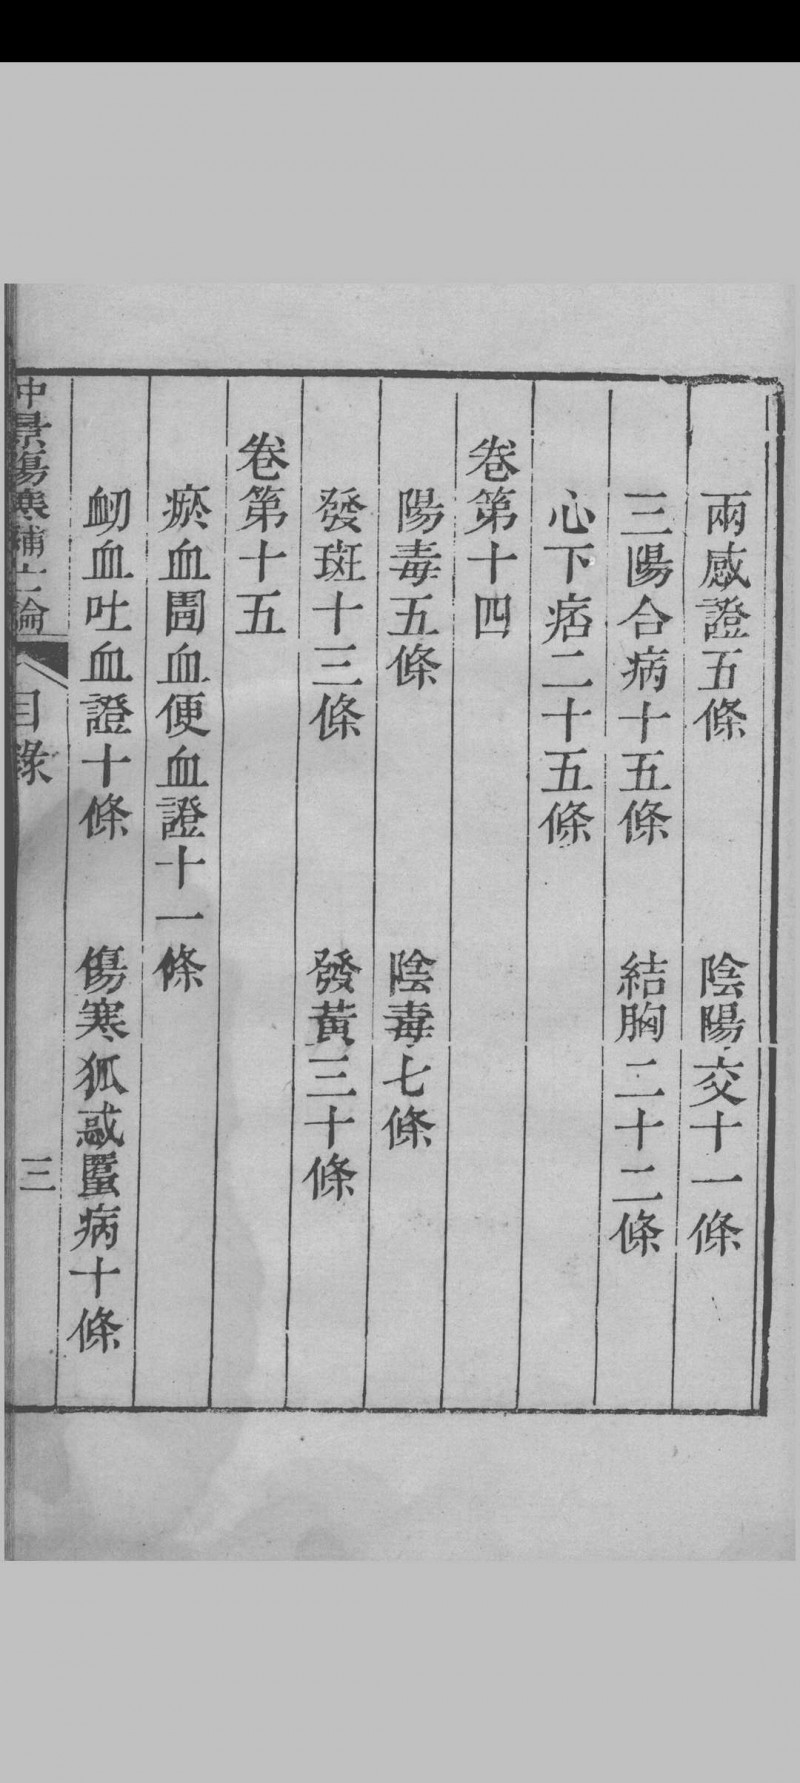 兩感證五條　陰陽交十一條
三陽合病十五條　結胸二十二條
心下痞二十五條
卷第十四
陽毒五條　陰毒七條
發斑十三條　發黃三十條
卷第十五
瘀血畜血便血證十一條
衂血吐血證十條　傷寒狐惑䘌病十條
仲景傷寒補亡論　目錄　三